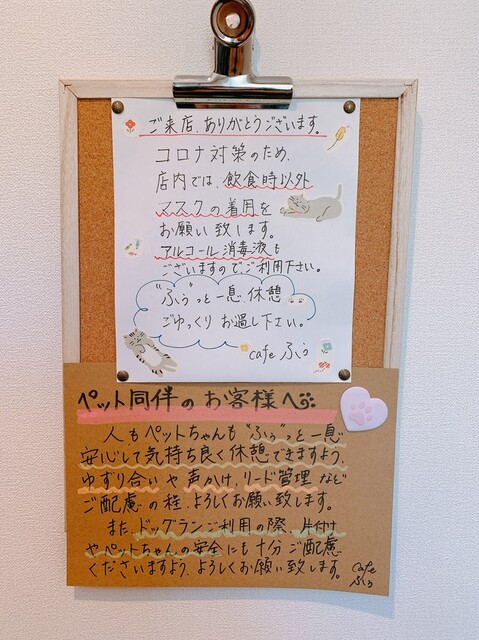 ご来店、ありがとうございます。
コロナ対策のため、
店内では、飲食時以外
マスクの着用を
お願い致します。
アルコール消毒液も
ございますのでご利用下さい。
"ふぅ"っと一息、休憩
ごゆっくりお過し下さい。
cafe ふぅ
ペット同伴のお客様へ
人もペットちゃんも"ふぅ"っと一息
安心して気持ち良く休憩できますよう、
ゆずり合いや声かけ、リード管理など
ご配慮の程、よろしくお願い致します。
また、ドッグランご利用の際、片付け
やペットちゃんの安全にも十分ご配慮
くださいますよう、よろしくお願い致します。
cafe
ふぅ